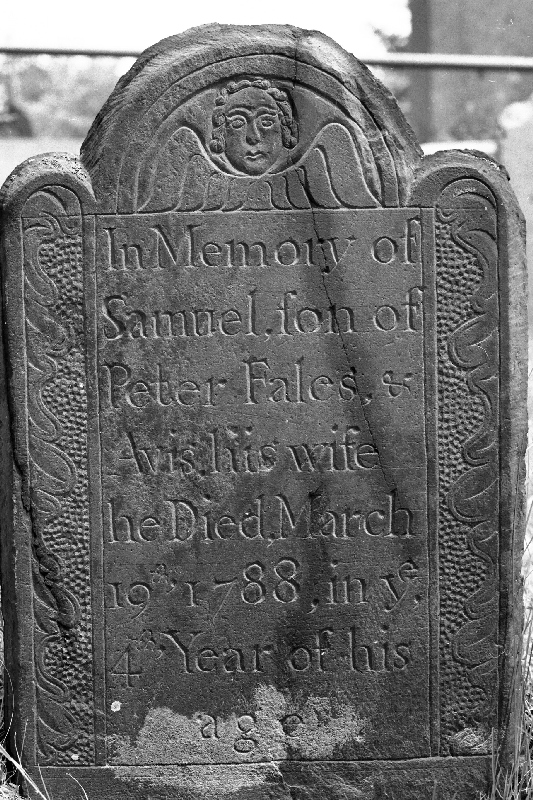 In Memory of
Samuel, ſon of
Peter Fales, &
Avis, his wife
he Died, March
19th, 1788, in yͤ,
4th, Year of his
age